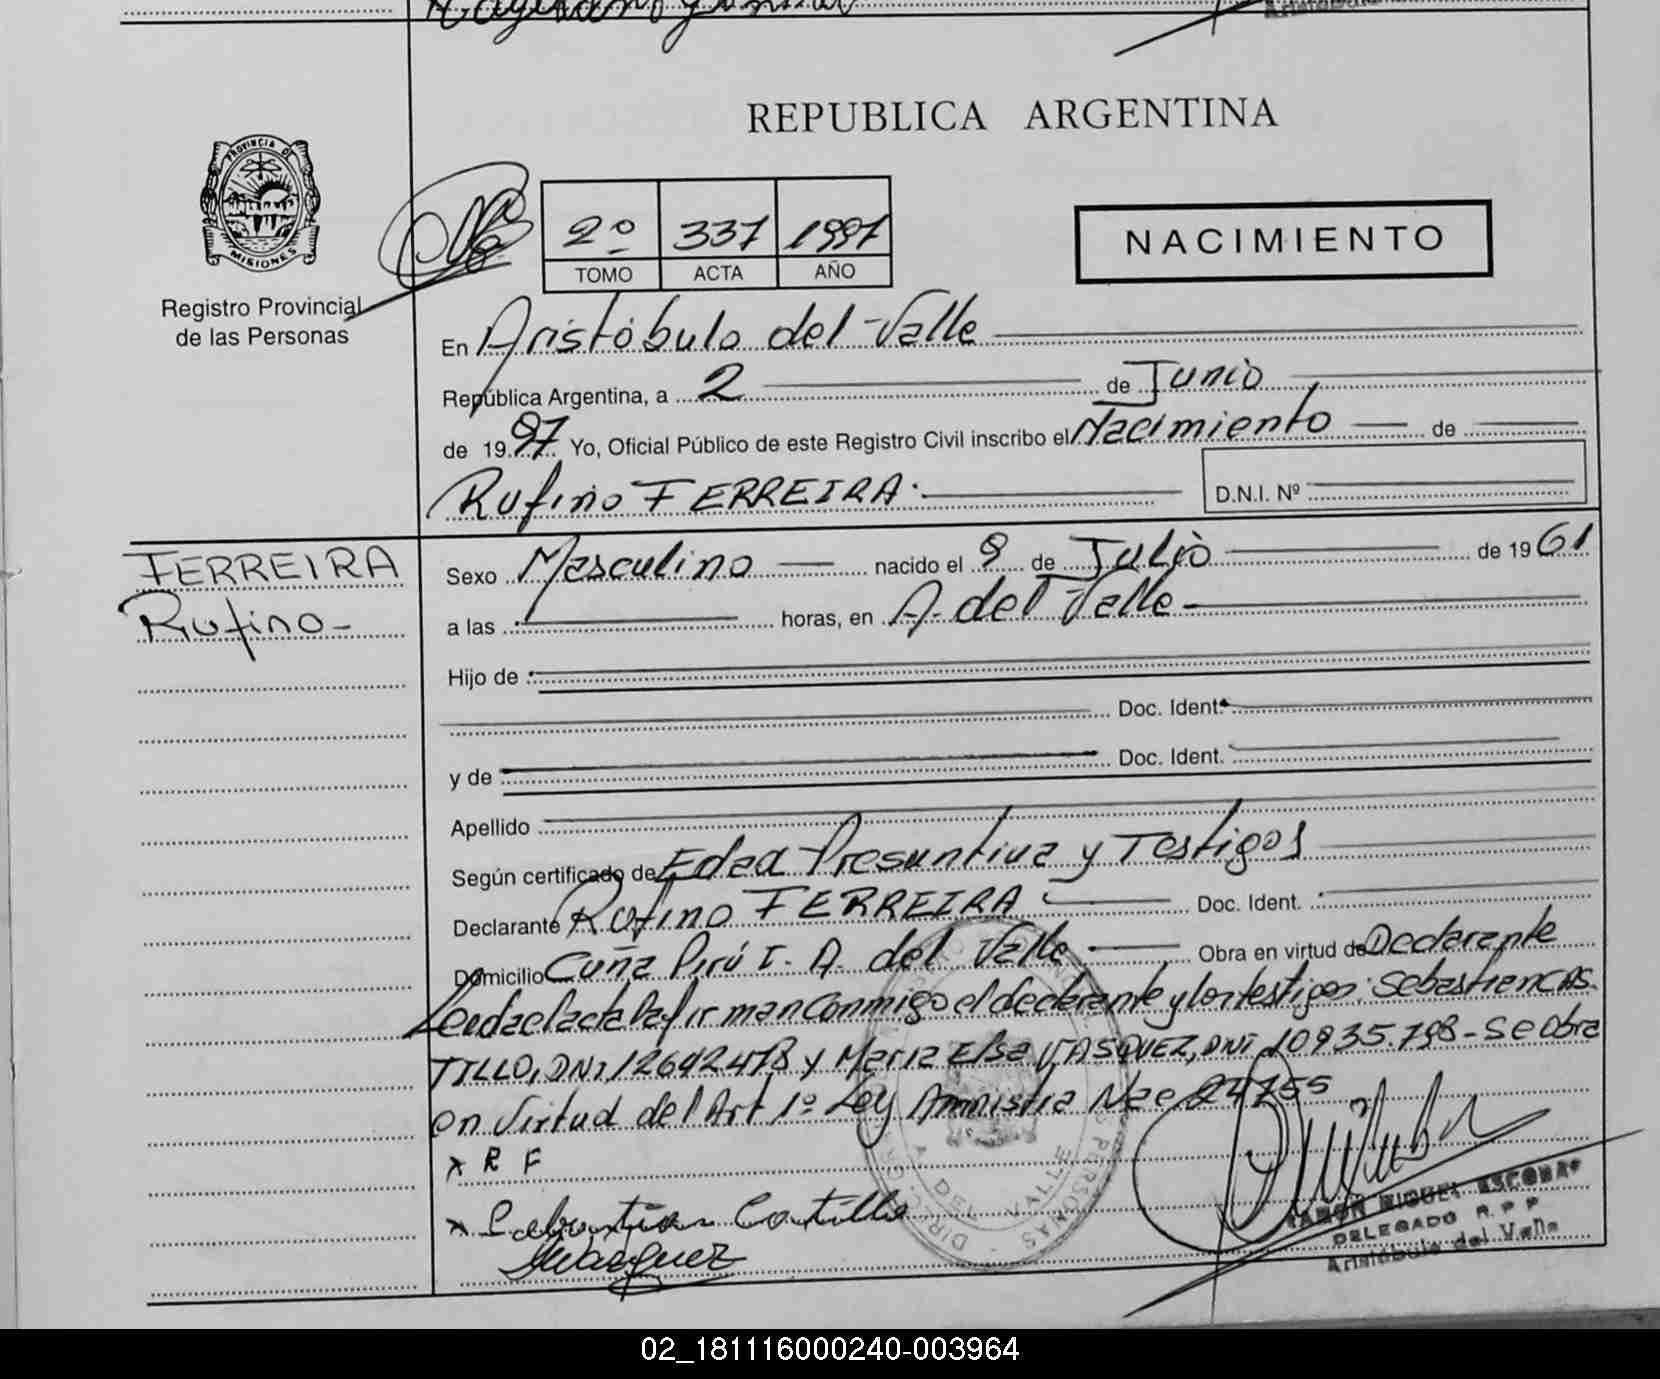 REPUBLICA ARGENTINA
PROVINCIA DE
MISIONES
Registro Provincial
de las Personas
2º 337 1997
TOMO ACTA AÑO
NACIMIENTO
En Aristóbulo del Valle
República Argentina, a 2 de Junio
de 1997 Yo, Oficial Público de este Registro Civil inscribo el Nacimiento de
Rufino FERREIRA. D.N.I. Nº
FERREIRA
Rufino-
Sexo Masculino nacido el 8 de Julio de 1961
a las horas, en A. del Valle
Hijo de
Doc. Ident.
y de Doc. Ident.
Apellido
Según certificado de Edad Presuntiva y Testigos
Declarante Rufino FERREIRA Doc. Ident.
Domicilio Cuña Pirú I. A. del Valle Obra en virtud de Declarante
Leida el acta la firman conmigo el declarante y los testigos: Sebastian CAS
TILLO, DNI 12642478 y Maria Elsa VASQUEZ, DNI 10935.798- se obra
en virtud del Art 1º Ley Amnistia Nac 24755
x R F
x Sebastian Castillo
Vasquez
RAMON MIGUEL ESCOBAR
DELEGADO R.P.P.
Aristóbulo del Valle
02_181116000240-003964